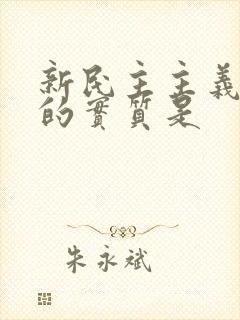 新民主主義
的實質是
朱永斌